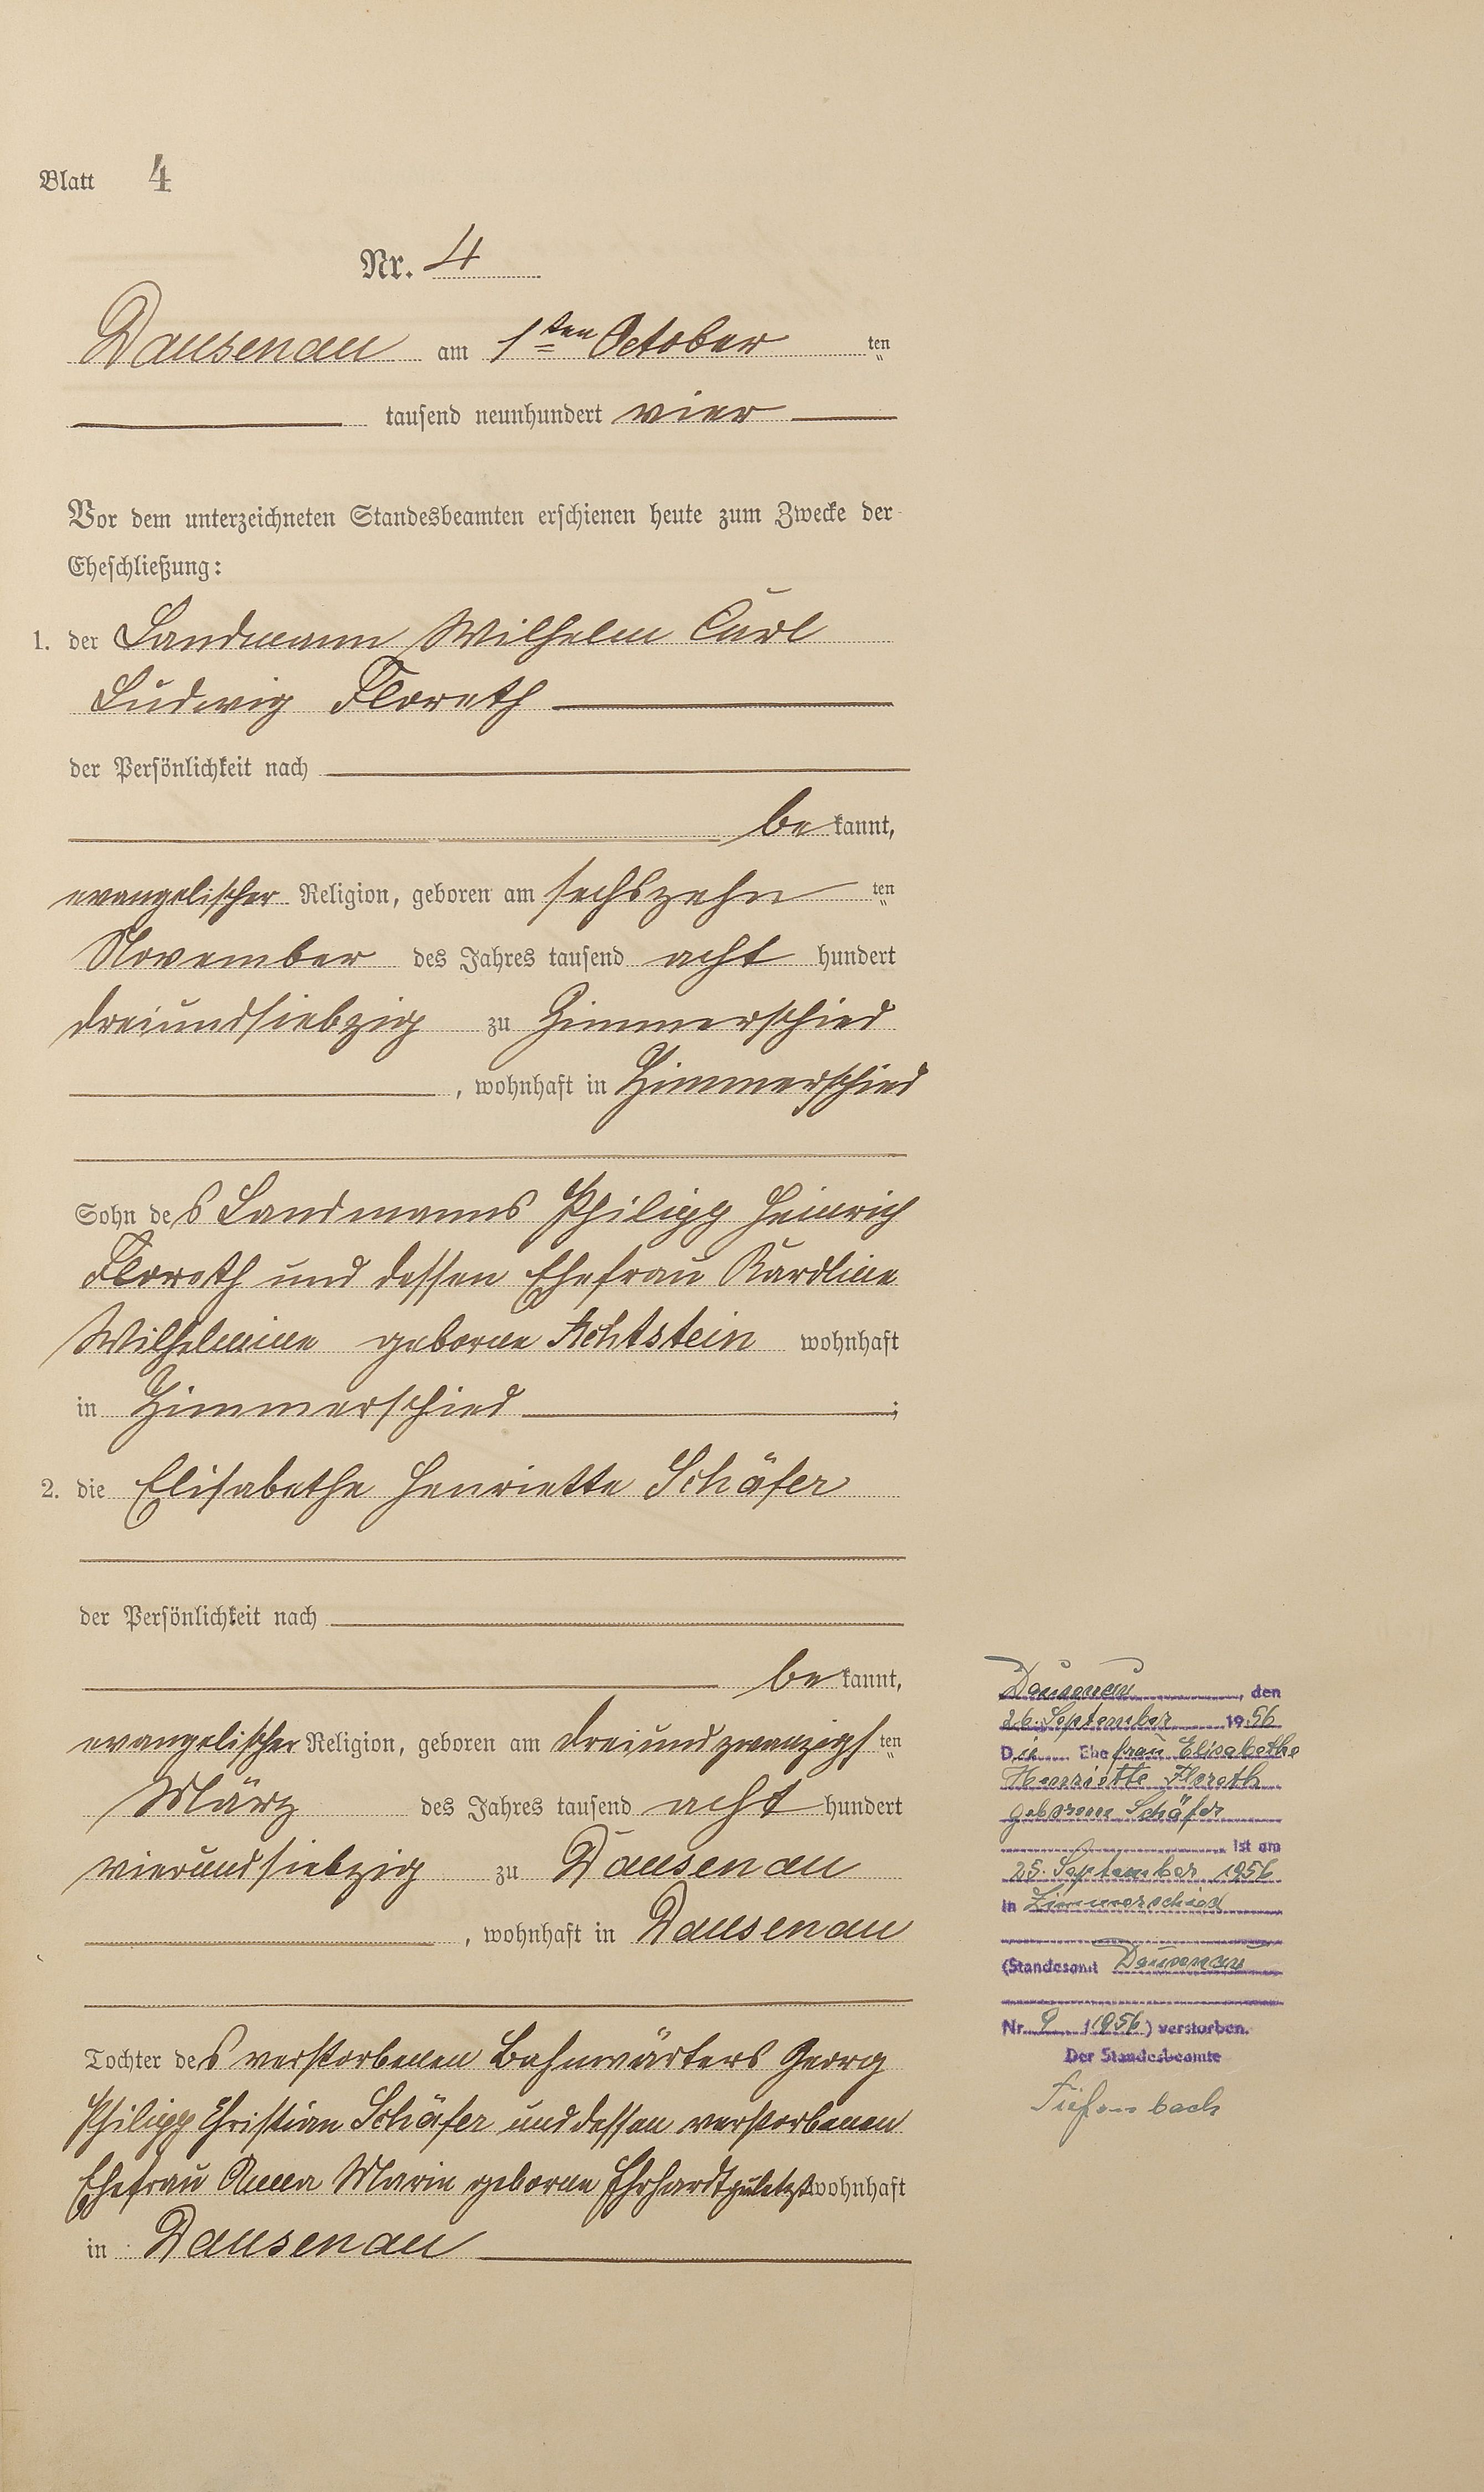 Blatt 4
Nr. 4
Dausenau am 1ten October ten
tausend neunhundert vier
Vor dem unterzeichneten Standesbeamten erschienen heute zum Zwecke der
Eheschließung:
1. der Landmann Wilhelm Carl
Ludwig Floreth
der Persönlichkeit nach
be kannt,
evangelischer Religion, geboren am sechszehn ten
November des Jahres tausend acht hundert
dreiundsiebzig zu Zimmerschied
, wohnhaft in Zimmerschied
Sohn des Landmanns Philipp Heinrich
Floreth und dessen Ehefrau Karoline
Wilhelmine geborne Achtstein wohnhaft
in Zimmerschied ;
2. die Elisabethe Henriette Schäfer
der Persönlichkeit nach
be kannt,
evangelischer Religion, geboren am dreiundzwanzigs ten
März des Jahres tausend acht hundert
vierundsiebzig zu Dausenau
, wohnhaft in Dausenau
Tochter des verstorbenen Bahnwärters Georg
Philipp Christian Schäfer und dessen verstorbenen
Ehefrau Anna Marie geborne Ehrhardt zuletzt wohnhaft
in Dausenau
Dausenau, den
26. September 1956
Die Ehefrau Elisabethe
Henriette Floreth
geborene Schäfer
ist am
25. September 1956
in Zimmerschied
(Standesamt Dausenau
Nr. 9 /1956) verstorben.
Der Standesbeamte
Tiefenbach